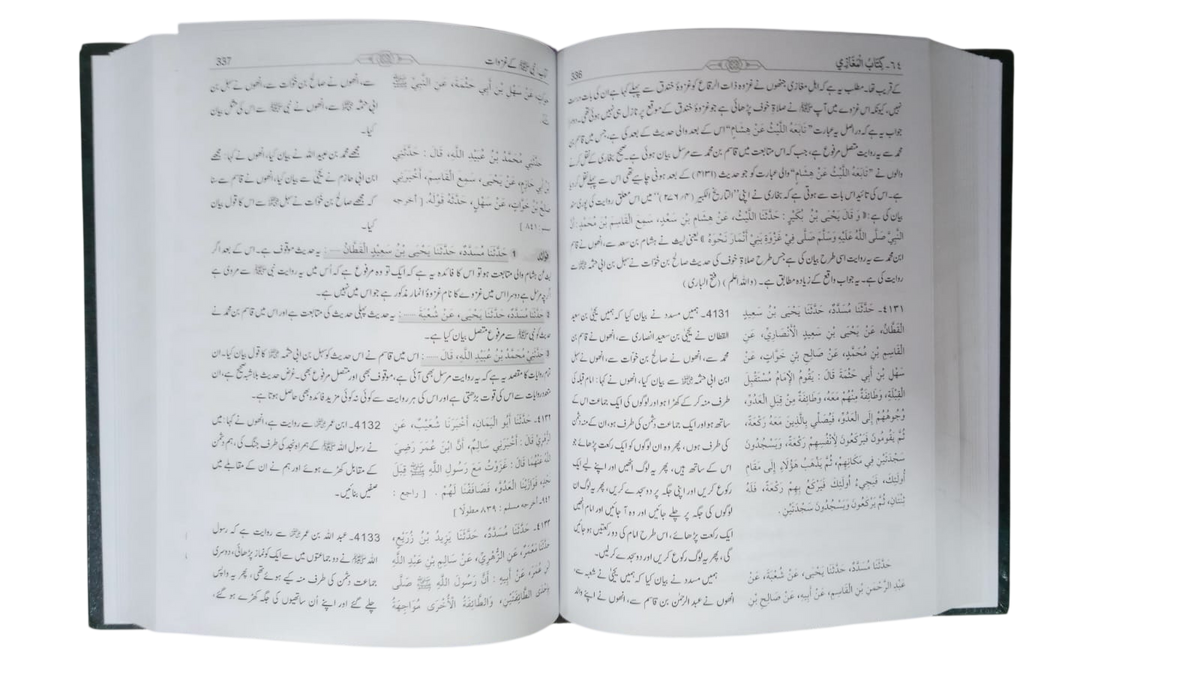 ٦٤ - كِتَابُ الْمَغَازِي
336
کے قریب تھا۔ مطلب یہ ہے کہ اہل مغازی جنھوں نے غزوہ ذات الرقاع کو غزوۂ خندق سے پہلے کہا ہے ان کی بات درست
نہیں، کیونکہ اس غزوے میں آپ ﷺ نے صلاۃ خوف پڑھائی ہے جو غزوۂ خندق کے موقع پر نازل ہی نہیں ہوئی تھی۔
جواب یہ ہے کہ دراصل یہ عبارت ”تَابَعَهُ اللَّيْثُ عَنْ هِشَامٍ“ اس کے بعد والی حدیث کے بعد کی ہے، جس میں قاسم بن
محمد سے یہ روایت متصل مرفوع ہے، جب کہ اس متابعت میں قاسم بن محمد سے مرسل بیان ہوئی ہے۔ صحیح بخاری کے نقل کرنے
والوں نے ”تَابَعَهُ اللَّيْثُ عَنْ هِشَامٍ“ والی عبارت کو جو حدیث (٤١٣١) کے بعد ہونی چاہیے تھی اس سے پہلے نقل کر دیا
ہے۔ اس کی تائید اس بات سے ہوتی ہے کہ بخاری نے اپنی ”التاریخ الکبیر (٤/ ٢٧٦)“ میں اس معلق روایت کی پوری سند
بیان کی ہے: « وَ قَالَ يَحْيَى بْنُ بُكَيْرٍ: حَدَّثَنَا اللَّيْثُ، عَنْ هِشَامِ بْنِ سَعْدٍ، سَمِعَ الْقَاسِمَ بْنَ مُحَمَّدٍ: أَنَّ
النَّبِيَّ صَلَّى اللهُ عَلَيْهِ وَسَلَّمَ صَلَّى فِي غَزْوَةِ بَنِي أَنْمَارَ نَحْوَهُ » یعنی لیث نے ہشام بن سعد سے، انھوں نے قاسم
ابن محمد سے یہ روایت اسی طرح بیان کی ہے جس طرح صلاۃ خوف کی حدیث صالح بن خوّات نے سہل بن ابی حثمہ ﷺ سے
روایت کی ہے۔ یہ جواب واقع کے زیادہ مطابق ہے۔ (واللہ اعلم) (فتح الباری)
٤١٣١- حَدَّثَنَا مُسَدَّدٌ، حَدَّثَنَا يَحْيَى بْنُ سَعِيدٍ
الْقَطَّانُ، عَنْ يَحْيَى بْنِ سَعِيدٍ الْأَنْصَارِيِّ، عَنِ
الْقَاسِمِ بْنِ مُحَمَّدٍ، عَنْ صَالِحِ بْنِ خَوَّاتٍ، عَنْ
سَهْلِ بْنِ أَبِي حَثْمَةَ قَالَ: يَقُومُ الْإِمَامُ مُسْتَقْبِلَ
الْقِبْلَةِ، وَطَائِفَةٌ مِنْهُمْ مَعَهُ، وَطَائِفَةٌ مِنْ قِبَلِ الْعَدُوِّ،
وُجُوهُهُمْ إِلَى الْعَدُوِّ، فَيُصَلِّي بِالَّذِينَ مَعَهُ رَكْعَةً،
ثُمَّ يَقُومُونَ فَيَرْكَعُونَ لِأَنْفُسِهِمْ رَكْعَةً، وَيَسْجُدُونَ
سَجْدَتَيْنِ فِي مَكَانِهِمْ، ثُمَّ يَذْهَبُ هَؤُلَاءِ إِلَى مَقَامِ
أُولَئِكَ، فَيَجِيءُ أُولَئِكَ فَيَرْكَعُ بِهِمْ رَكْعَةً، فَلَهُ
ثِنْتَانِ، ثُمَّ يَرْكَعُونَ وَيَسْجُدُونَ سَجْدَتَيْنِ.
حَدَّثَنَا مُسَدَّدٌ، حَدَّثَنَا يَحْيَى، عَنْ شُعْبَةَ، عَنْ
عَبْدِ الرَّحْمَنِ بْنِ الْقَاسِمِ، عَنْ أَبِيهِ، عَنْ صَالِحِ بْنِ
4131- ہمیں مسدد نے بیان کیا کہ ہمیں یحییٰ بن سعید
القطان نے یحییٰ بن سعید انصاری سے، انھوں نے قاسم بن
محمد سے، انھوں نے صالح بن خوّات سے، انھوں نے سہل
ابن ابی حثمہ ﷺ سے بیان کیا، انھوں نے کہا: امام قبلہ کی
طرف منہ کر کے کھڑا ہو اور لوگوں کی ایک جماعت اس کے
ساتھ ہو اور ایک جماعت دشمن کی طرف ہو، ان کے منہ دشمن
کی طرف ہوں، پھر وہ ان لوگوں کو ایک رکعت پڑھائے جو
اس کے ساتھ ہیں، پھر یہ لوگ اٹھیں اور اپنے لیے ایک
رکوع کریں اور اپنی جگہ پر دو سجدے کریں، پھر یہ لوگ ان
لوگوں کی جگہ پر چلے جائیں اور وہ آ جائیں اور امام انھیں
ایک رکعت پڑھائے، اس طرح امام کی دو رکعتیں ہو جائیں
گی، پھر یہ لوگ رکوع کریں اور دو سجدے کر لیں۔
ہمیں مسدد نے بیان کیا کہ ہمیں یحییٰ نے شعبہ سے،
انھوں نے عبد الرحمٰن بن قاسم سے، انھوں نے اپنے والد
کتاب نبی ﷺ کے غزوات
337
خَوَّاتٍ، عَنْ سَهْلِ بْنِ أَبِي حَثْمَةَ، عَنِ النَّبِيِّ ﷺ
مِثْلَهُ.
حَدَّثَنِي مُحَمَّدُ بْنُ عُبَيْدِ اللهِ، قَالَ: حَدَّثَنِي
ابْنُ أَبِي حَازِمٍ، عَنْ يَحْيَى، سَمِعَ الْقَاسِمَ، أَخْبَرَنِي
صَالِحُ بْنُ خَوَّاتٍ، عَنْ سَهْلٍ، حَدَّثَهُ قَوْلَهُ. [ أخرجه
مسلم: ٨٤١ ]
سے، انھوں نے صالح بن خوّات سے، انھوں نے سہل بن
ابی حثمہ ﷺ سے، انھوں نے نبی ﷺ سے اس کی مثل بیان
کیا۔
مجھے محمد بن عبید اللہ نے بیان کیا، انھوں نے کہا: مجھے
ابن ابی حازم نے یحییٰ سے بیان کیا، انھوں نے قاسم سے سنا
کہ مجھے صالح بن خوّات نے سہل سے اس کا قول بیان
کیا۔
فوائد 1 حَدَّثَنَا مُسَدَّدٌ، حَدَّثَنَا يَحْيَى بْنُ سَعِيدٍ الْقَطَّانُ ...... : یہ حدیث موقوف ہے۔ اس کے بعد اگر
لیث عن ہشام والی متابعت ہو تو اس کا فائدہ یہ ہے کہ ایک تو وہ مرفوع ہے کہ اُس میں یہ روایت نبی ﷺ سے مروی ہے
اگرچہ مرسل ہے دوسرا اس میں غزوے کا نام غزوۂ انمار مذکور ہے جو اس میں نہیں ہے۔
2 حَدَّثَنَا مُسَدَّدٌ، حَدَّثَنَا يَحْيَى، عَنْ شُعْبَةَ ...... : یہ حدیث پہلی حدیث کی متابعت ہے اور اس میں قاسم بن محمد نے
حدیث کو نبی ﷺ سے مرفوع متصل بیان کیا ہے۔
3 حَدَّثَنِي مُحَمَّدُ بْنُ عُبَيْدِ اللهِ، قَالَ ...... : اس میں قاسم نے اس حدیث کو سہل بن ابی حثمہ ﷺ کا قول بیان کیا۔ ان
تمام روایات کا مقصد یہ ہے کہ یہ روایت مرسل بھی آئی ہے، موقوف بھی اور متصل مرفوع بھی۔ غرض حدیث بلاشبہ صحیح ہے، ان
متعدد روایات سے اس کی قوت بڑھتی ہے اور اس کی ہر روایت سے کوئی نہ کوئی مزید فائدہ بھی حاصل ہوتا ہے۔
٤١٣٢- حَدَّثَنَا أَبُو الْيَمَانِ، أَخْبَرَنَا شُعَيْبٌ، عَنِ
الزُّهْرِيِّ قَالَ: أَخْبَرَنِي سَالِمٌ، أَنَّ ابْنَ عُمَرَ رَضِيَ
اللهُ عَنْهُمَا قَالَ: غَزَوْتُ مَعَ رَسُولِ اللهِ ﷺ قِبَلَ
نَجْدٍ، فَوَازَيْنَا الْعَدُوَّ، فَصَافَفْنَا لَهُمْ. [ راجع:
٩٤٢۔ أخرجه مسلم: ٨٣٩ مطولًا ]
4132- ابن عمر ﷺ سے روایت ہے، انھوں نے کہا: میں
نے رسول اللہ ﷺ کے ہمراہ نجد کی طرف جنگ کی، ہم دشمن
کے مقابل کھڑے ہوئے اور ہم نے ان کے مقابلے میں
صفیں بنائیں۔
٤١٣٣- حَدَّثَنَا مُسَدَّدٌ، حَدَّثَنَا يَزِيدُ بْنُ زُرَيْعٍ،
حَدَّثَنَا مَعْمَرٌ، عَنِ الزُّهْرِيِّ، عَنْ سَالِمِ بْنِ عَبْدِ اللهِ
ابْنِ عُمَرَ، عَنْ أَبِيهِ: أَنَّ رَسُولَ اللهِ ﷺ صَلَّى
بِإِحْدَى الطَّائِفَتَيْنِ، وَالطَّائِفَةُ الْأُخْرَى مُوَاجِهَةُ
4133- عبد اللہ بن عمر ﷺ سے روایت ہے کہ رسول
اللہ ﷺ نے دو جماعتوں میں سے ایک کو نماز پڑھائی، دوسری
جماعت دشمن کی طرف منہ کیے ہوئے تھی، پھر یہ واپس
چلے گئے اور اپنے اُن ساتھیوں کی جگہ کھڑے ہو گئے،